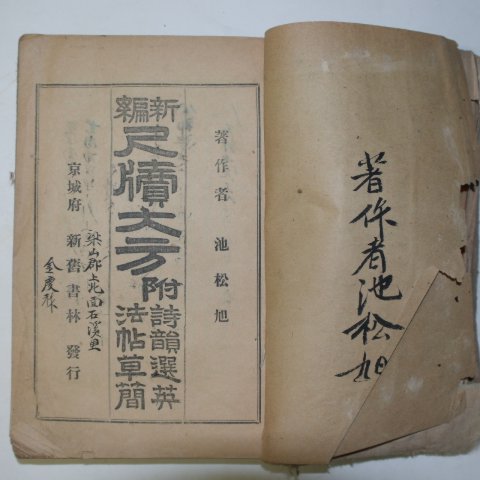 著作者池松旭
著作者 池松旭
新編
尺牘大方
附 詩韻選英
法帖草簡
梁山郡上北面石溪里
京城府 新舊書林 發行